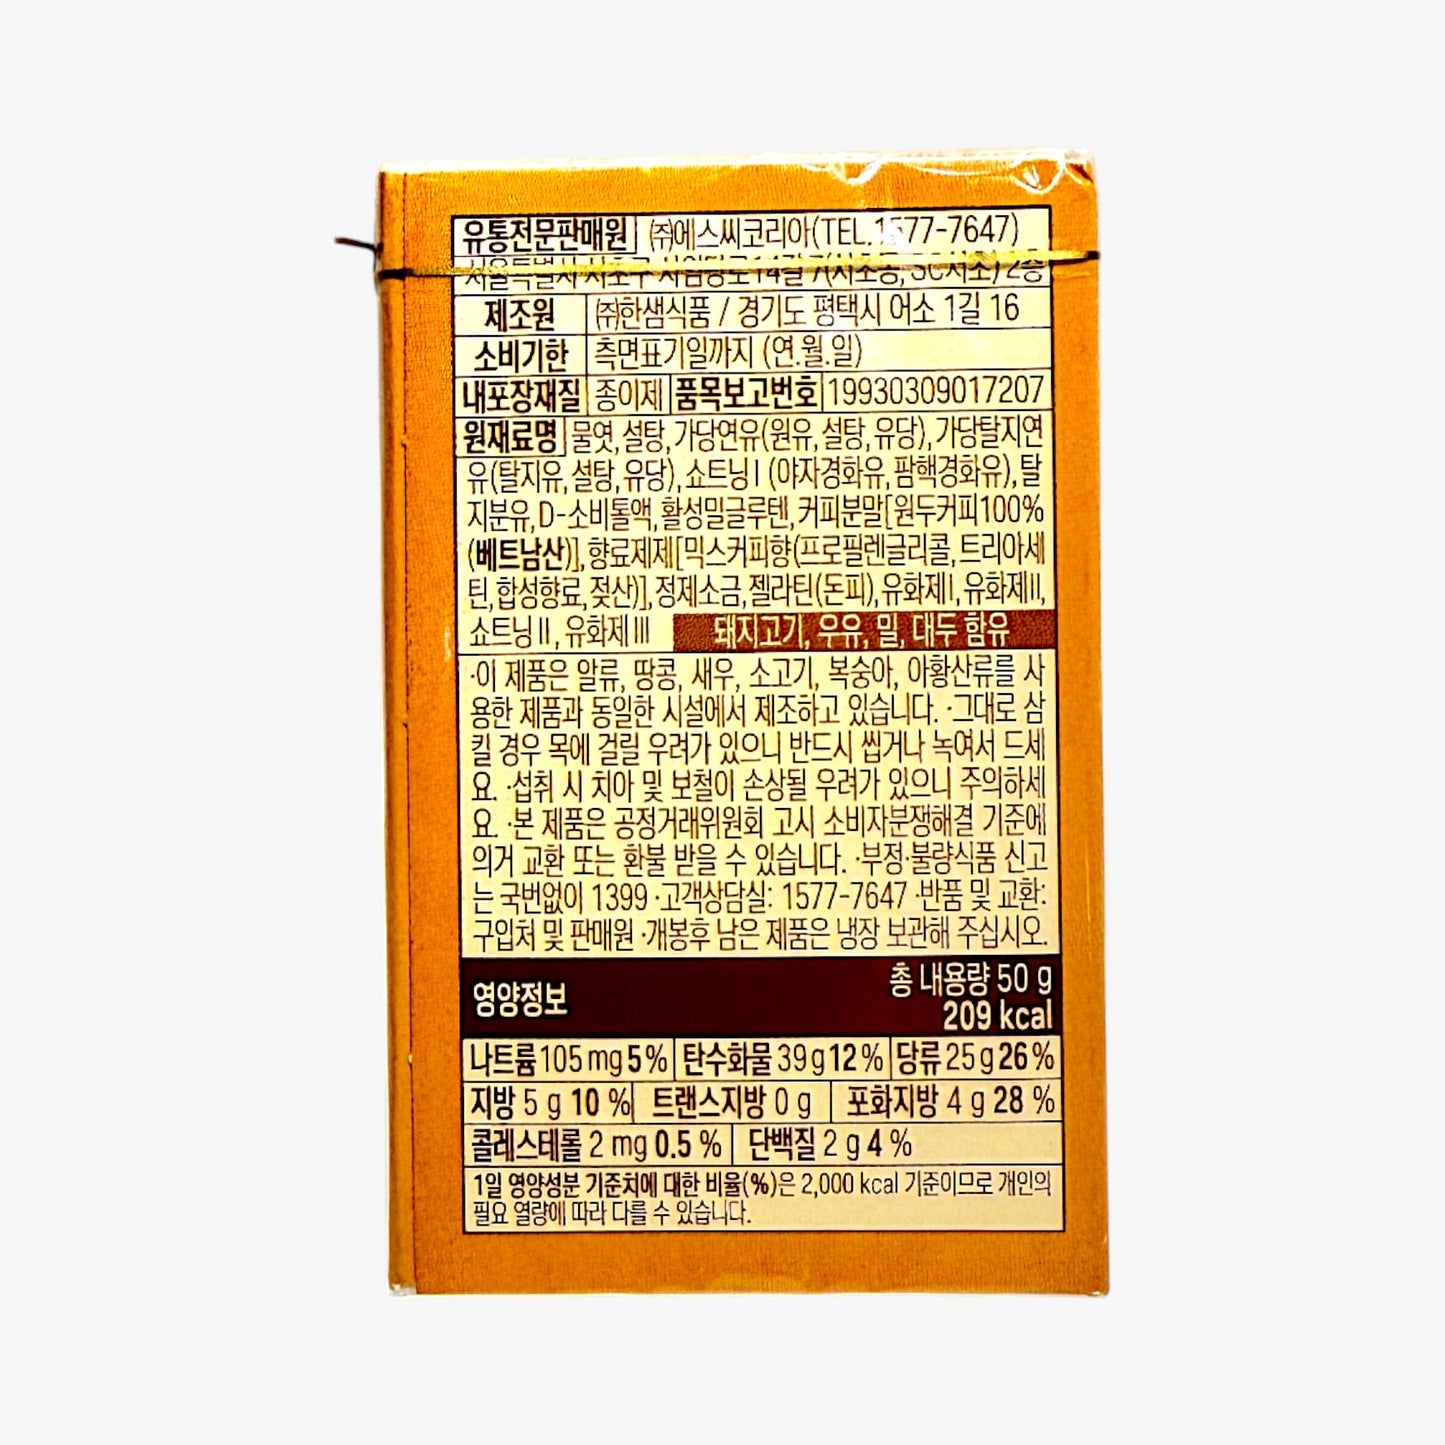 유통전문판매원 ㈜에스씨코리아(TEL.1577-7647)
서울특별시 서초구 사임당로14길 7(서초동, SC서초) 2층
제조원 ㈜한샘식품 / 경기도 평택시 어소 1길 16
소비기한 측면표기일까지 (연.월.일)
내포장재질 종이제 품목보고번호 19930309017207
원재료명 물엿, 설탕, 가당연유(원유, 설탕, 유당), 가당탈지연
유(탈지유, 설탕, 유당), 쇼트닝Ⅰ (야자경화유, 팜핵경화유), 탈
지분유, D-소비톨액, 활성밀글루텐, 커피분말[원두커피100%
(베트남산)], 향료제제[믹스커피향(프로필렌글리콜, 트리아세
틴, 합성향료, 젖산)], 정제소금, 젤라틴(돈피), 유화제Ⅰ, 유화제Ⅱ,
쇼트닝Ⅱ, 유화제Ⅲ 돼지고기, 우유, 밀, 대두 함유
·이 제품은 알류, 땅콩, 새우, 소고기, 복숭아, 아황산류를 사
용한 제품과 동일한 시설에서 제조하고 있습니다. ·그대로 삼
킬 경우 목에 걸릴 우려가 있으니 반드시 씹거나 녹여서 드세
요. ·섭취 시 치아 및 보철이 손상될 우려가 있으니 주의하세
요. ·본 제품은 공정거래위원회 고시 소비자분쟁해결 기준에
의거 교환 또는 환불 받을 수 있습니다. ·부정·불량식품 신고
는 국번없이 1399 ·고객상담실: 1577-7647 ·반품 및 교환:
구입처 및 판매원 ·개봉후 남은 제품은 냉장 보관해 주십시오.
영양정보 총 내용량 50 g
209 kcal
나트륨 105 mg 5 % 탄수화물 39 g 12 % 당류 25 g 26 %
지방 5 g 10 % 트랜스지방 0 g 포화지방 4 g 28 %
콜레스테롤 2 mg 0.5 % 단백질 2 g 4 %
1일 영양성분 기준치에 대한 비율(%)은 2,000 kcal 기준이므로 개인의
필요 열량에 따라 다를 수 있습니다.